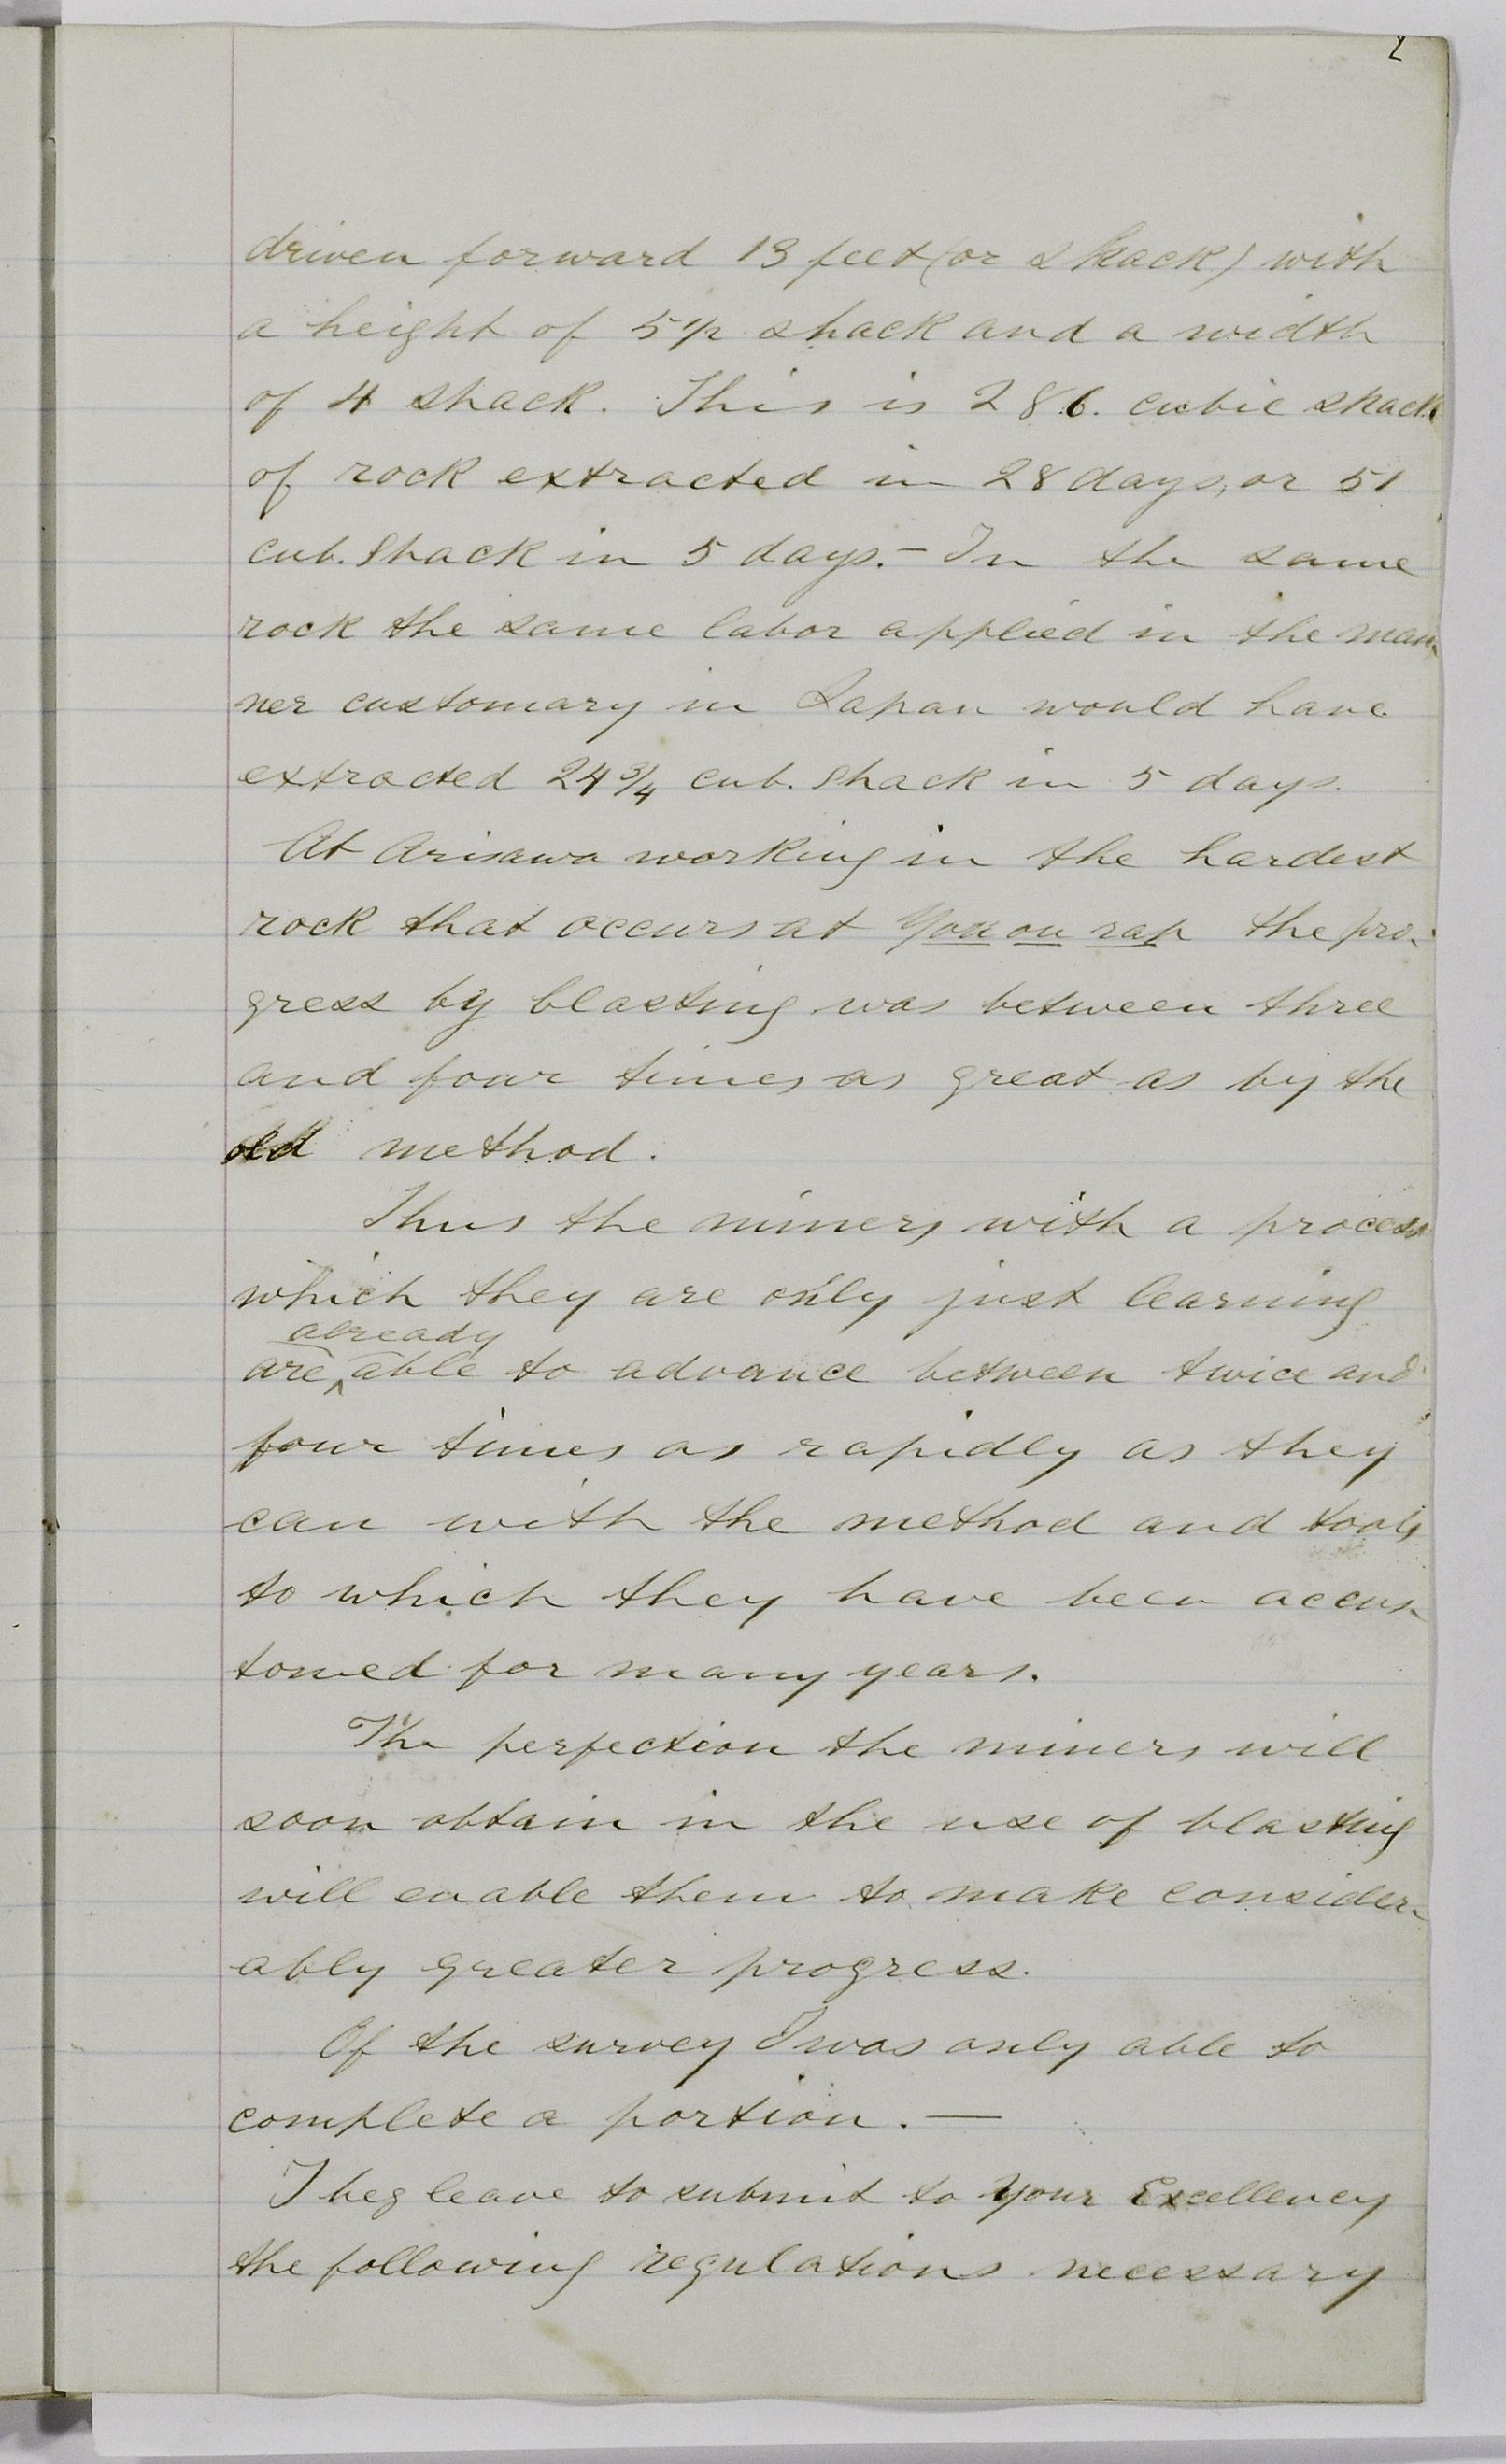 2
driven forward 13 feet (or Shack) with
a height of 5 1/2 shack and a width
of 4 shack. This is 286. cubic shack
of rock extracted in 28 days, or 51
cub. Shack in 5 days. — In the same
rock the same labor applied in the man-
ner customary in Japan would have
extracted 24 3/4 cub. Shack in 5 days.
At Arisawa working in the hardest
rock that occurs at You ou rap the pro-
gress by blasting was between three
and four times as great as by the
old method.
Thus the miners with a process
which they are only just learning
already
are ‸ able to advance between twice and
four times as rapidly as they
can with the method and tools
to which they have been accus-
tomed for many years.
The perfection the miners will
soon obtain in the use of blasting
will enable them to make consider-
ably greater progress.
Of the survey I was only able to
complete a portion. —
I beg leave to submit to Your Excellency
the following regulations necessary